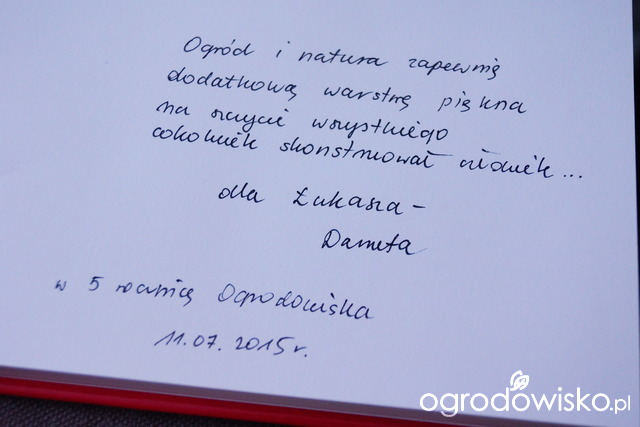 Ogród i natura zapewnią
dodatkową warstwę piękna
na szczycie wszystkiego
cokolwiek skonstruował człowiek...
dla Łukasza -
Danuta
w 5 rocznicę Ogrodowiska
11.07.2015r.
ogrodowisko.pl